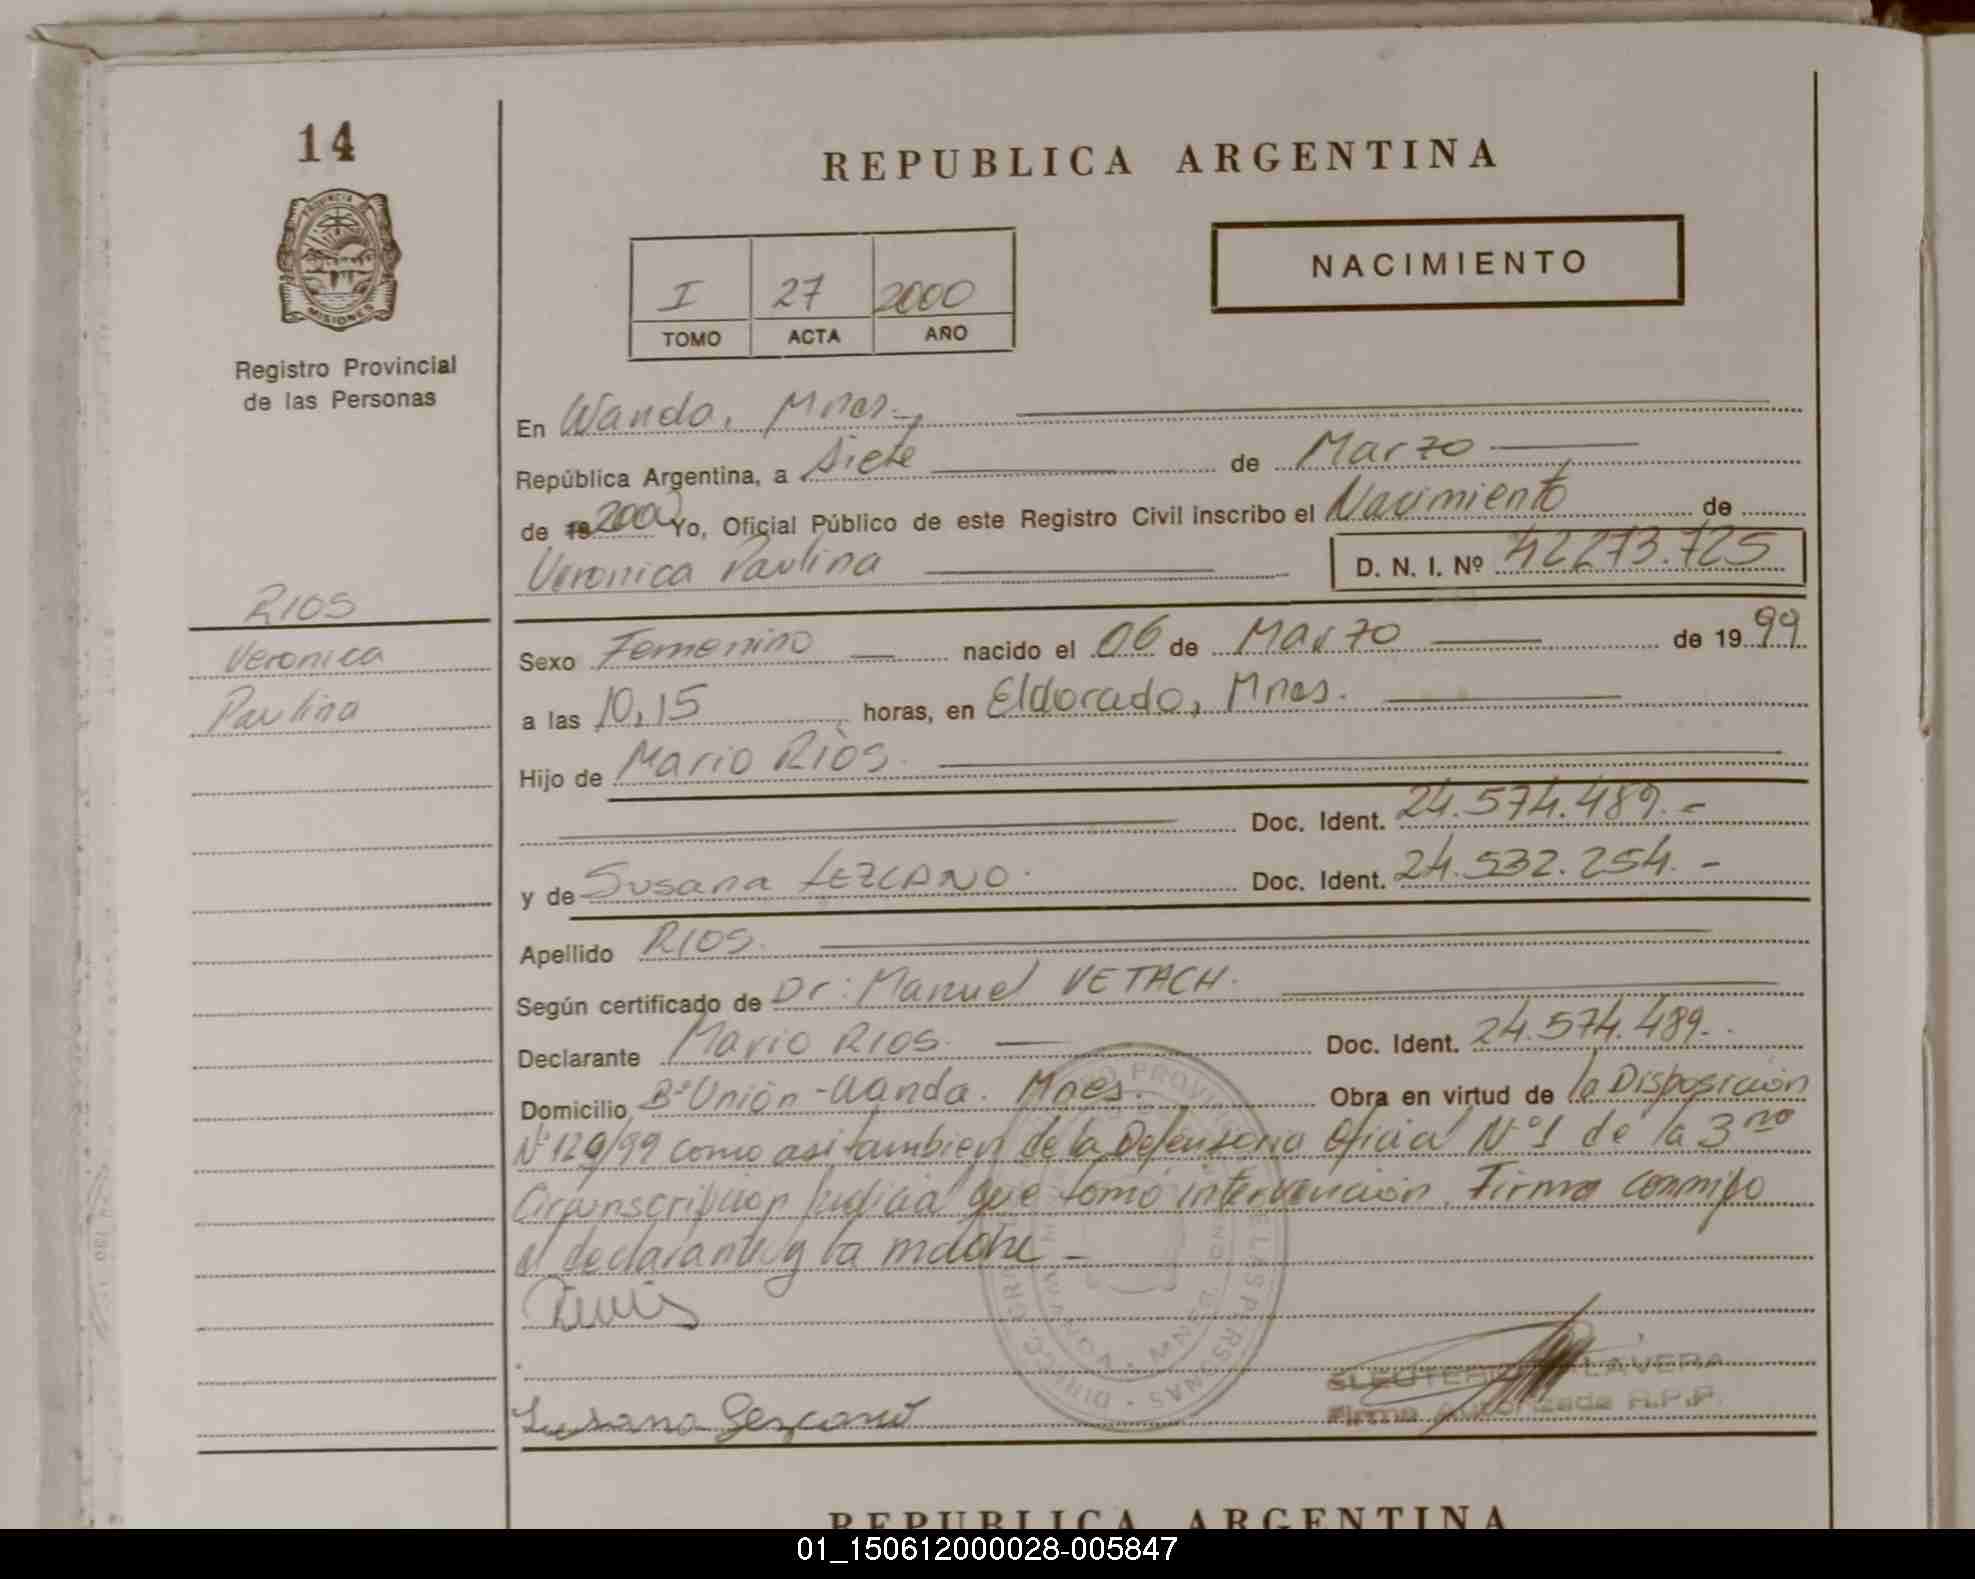 14
PROVINCIA DE
MISIONES
Registro Provincial
de las Personas
RIOS
Veronica
Paulina
REPUBLICA ARGENTINA
I 27 2000
TOMO ACTA AÑO
NACIMIENTO
En Wanda, Mnes.
República Argentina, a Siete de Marzo
de 19 2000 Yo, Oficial Público de este Registro Civil inscribo el Nacimiento de
Veronica Paulina D. N. I. Nº 42273.725
Sexo Femenino nacido el 06 de Marzo de 19 99
a las 10,15 horas, en Eldorado, Mnes.
Hijo de Mario Ríos.
Doc. Ident. 24.574.489.-
y de Susana LEZCANO. Doc. Ident. 24.532.254.-
Apellido RIOS.
Según certificado de Dr: Manuel VETACH.
Declarante Mario RIOS. Doc. Ident. 24.574.489.
Domicilio Bº Unión - Wanda. Mnes. Obra en virtud de la Disposición
Nº 129/99 como asi tambien de la Defensoria Oficial Nº 1 de la 3ra
Circunscripcion Judicial que tomó intervención. Firma conmigo
el declarante y la madre -
Susana Lezcano
ELEUTERIO TALAVERA
Firma Autorizada R.P.P.
REPUBLICA ARGENTINA
01_150612000028-005847